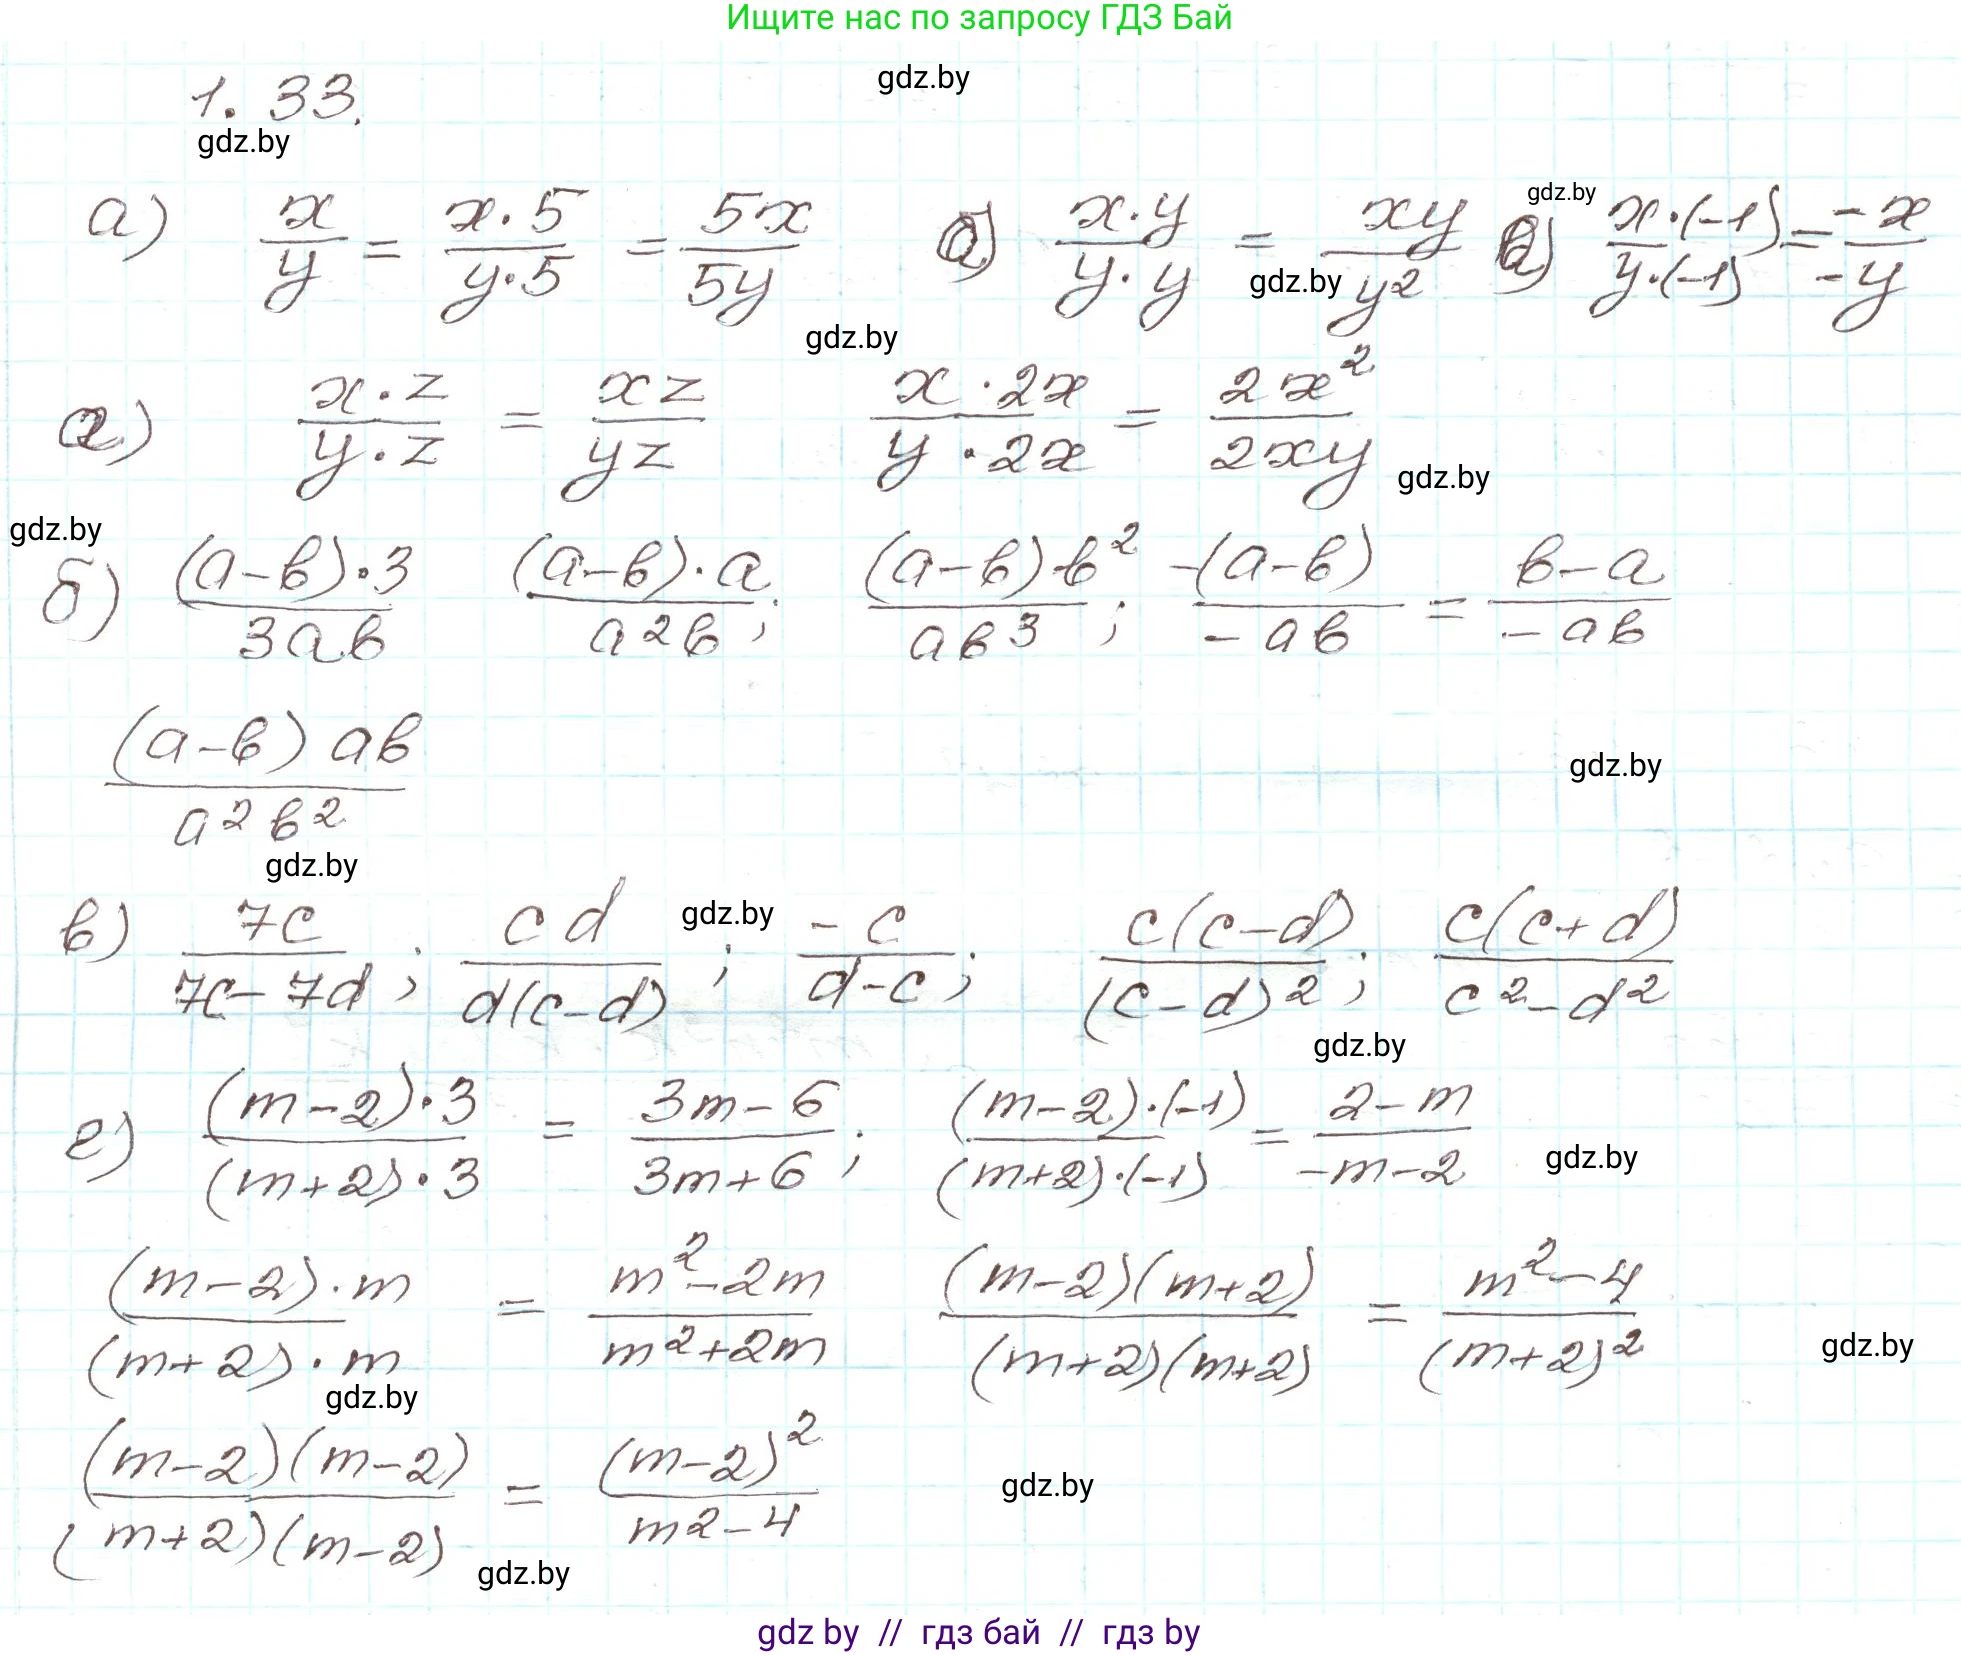 Ищите нас по запросу ГДЗ Бай
gdz.by
1. 33.
gdz.by
а) x/y = x·5/y·5 = 5x/5y а) x·y/y·y = xy/y² а) x·(-1)/y·(-1) = -x/-y
gdz.by
gdz.by
gdz.by
а) x·z/y·z = xz/yz x·2x/y·2x = 2x²/2xy
gdz.by
gdz.by
б) (a-b)·3/3ab (a-b)·a/a²b; (a-b)·b²/ab³; -(a-b)/-ab = b-a/-ab
(a-b) ab/a²b²
gdz.by
gdz.by
в) 7c/7c-7d; cd/d(c-d); -c/d-c; c(c-d)/(c-d)²; c(c+d)/c²-d²
gdz.by
gdz.by
г) (m-2)·3/(m+2)·3 = 3m-6/3m+6; (m-2)·(-1)/(m+2)·(-1) = 2-m/-m-2
gdz.by
(m-2)·m/(m+2)·m = m²-2m/m²+2m (m-2)(m+2)/(m+2)(m+2) = m²-4/(m+2)²
gdz.by
gdz.by
(m-2)(m-2)/(m+2)(m-2) = (m-2)²/m²-4
gdz.by
gdz.by
gdz by // гдз бай // гдз by